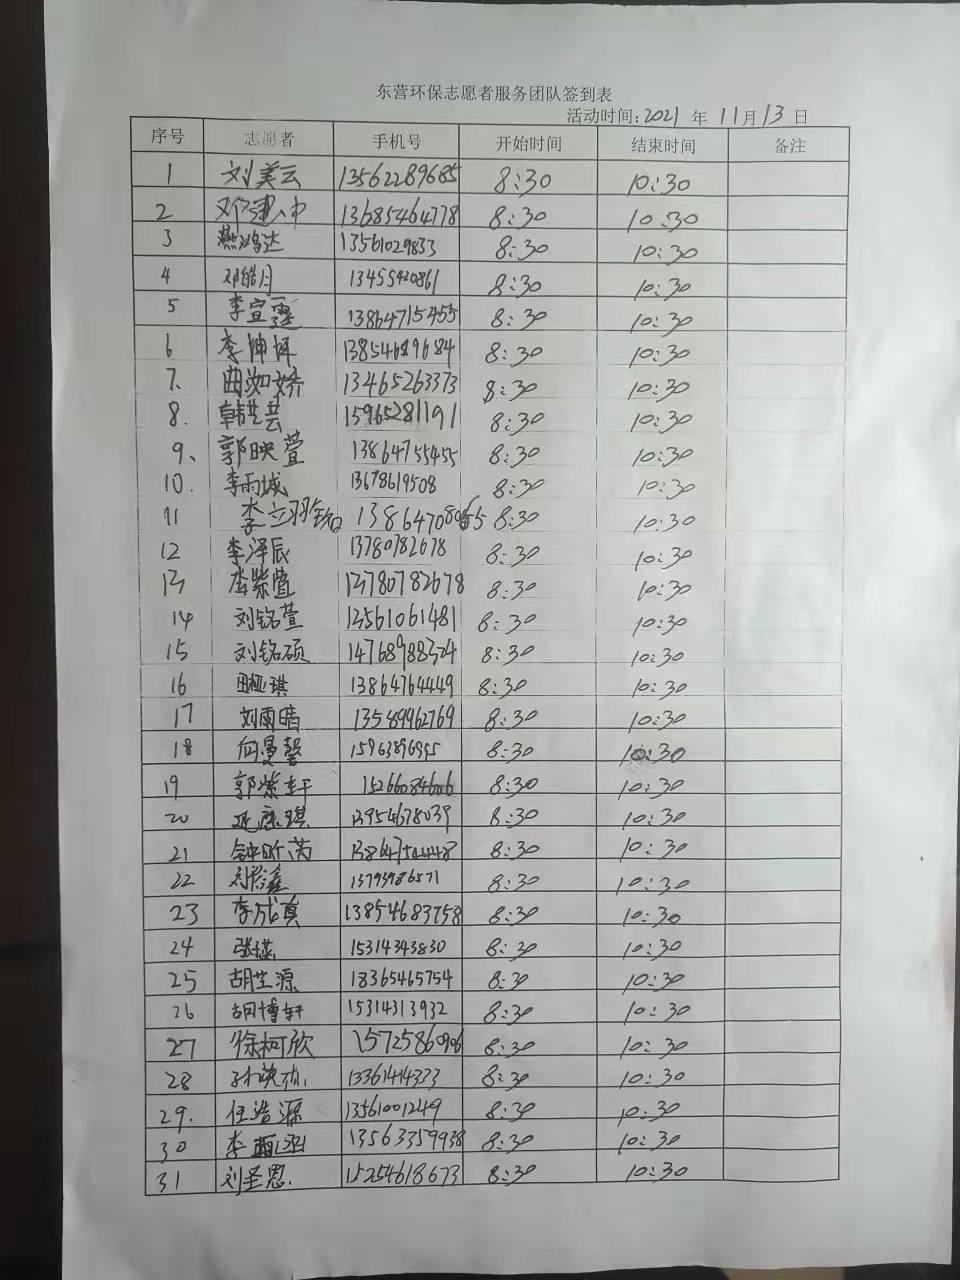 东营环保志愿者服务团队签到表
活动时间:2021 年 11月13日
序号 志愿者 手机号 开始时间 结束时间 备注
1 刘美云 13562289685 8:30 10:30
2 邓建中 13685464778 8:30 10:30
3 燕鸿达 13561029833 8:30 10:30
4 邓皓月 13455420861 8:30 10:30
5 李宜霆 13864715455 8:30 10:30
6 李坤烊 13854689684 8:30 10:30
7. 曲洳娇 13465263373 8:30 10:30
8. 韩芷芸 15965281191 8:30 10:30
9、 郭映萱 13864755455 8:30 10:30
10. 李雨城 13678619508 8:30 10:30
11 李立羽 8:30 10:30
12 李泽辰 13780782678 8:30 10:30
13 李紫萱 13780782678 8:30 10:30
14 刘铭萱 13561061481 8:30 10:30
15 刘铭硕 14768988324 8:30 10:30
16 田桠琪 13864764449 8:30 10:30
17 刘雨晴 13589962769 8:30 10:30
18 向曼馨 8:30 10:30
19 郭紫轩 15266084606 8:30 10:30
20 延康琪 13954678039 8:30 10:30
21 钟昕芮 8:30 10:30
22 13793986571 8:30 10:30
23 李成真 13854683758 8:30 10:30
24 张蕴 15314343830 8:30 10:30
25 胡芷源 18365465754 8:30 10:30
26 胡博轩 15314313932 8:30 10:30
27 徐柯欣 15725860906 8:30 10:30
28 13361414333 8:30 10:30
29. 任浩源 13561001249 8:30 10:30
30 李 13563359938 8:30 10:30
31 刘圣恩. 15254618673 8:30 10:30